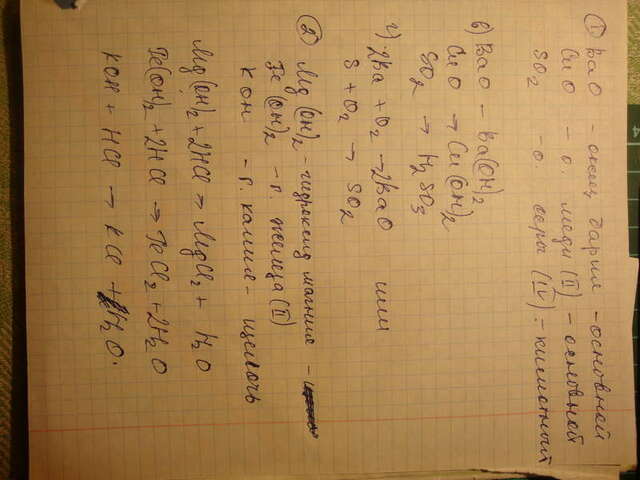 ① BaO - оксид бария - основной
CuO - о. меди (II) - основной
SO2 - о. серы (IV) - кислотный
в) BaO - Ba(OH)2
CuO → Cu(OH)2
SO2 → H2SO3
г) 2Ba + O2 → 2BaO или
S + O2 → SO2
② Mg(OH)2 - гидроксид магния -
Fe(OH)2 - г. железа (II)
KOH - г. калия - щелочь
Mg(OH)2 + 2HCl → MgCl2 + H2O
Fe(OH)2 + 2HCl → FeCl2 + 2H2O
KOH + HCl → KCl + H2O.